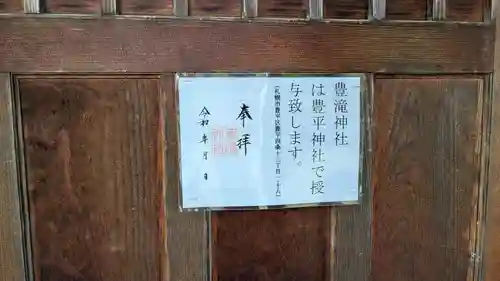 豊滝神社
は豊平神社で授
与致します。
(札幌市豊平区豊平四条十三丁目一-十八)
奉拝
令和 年 月 日